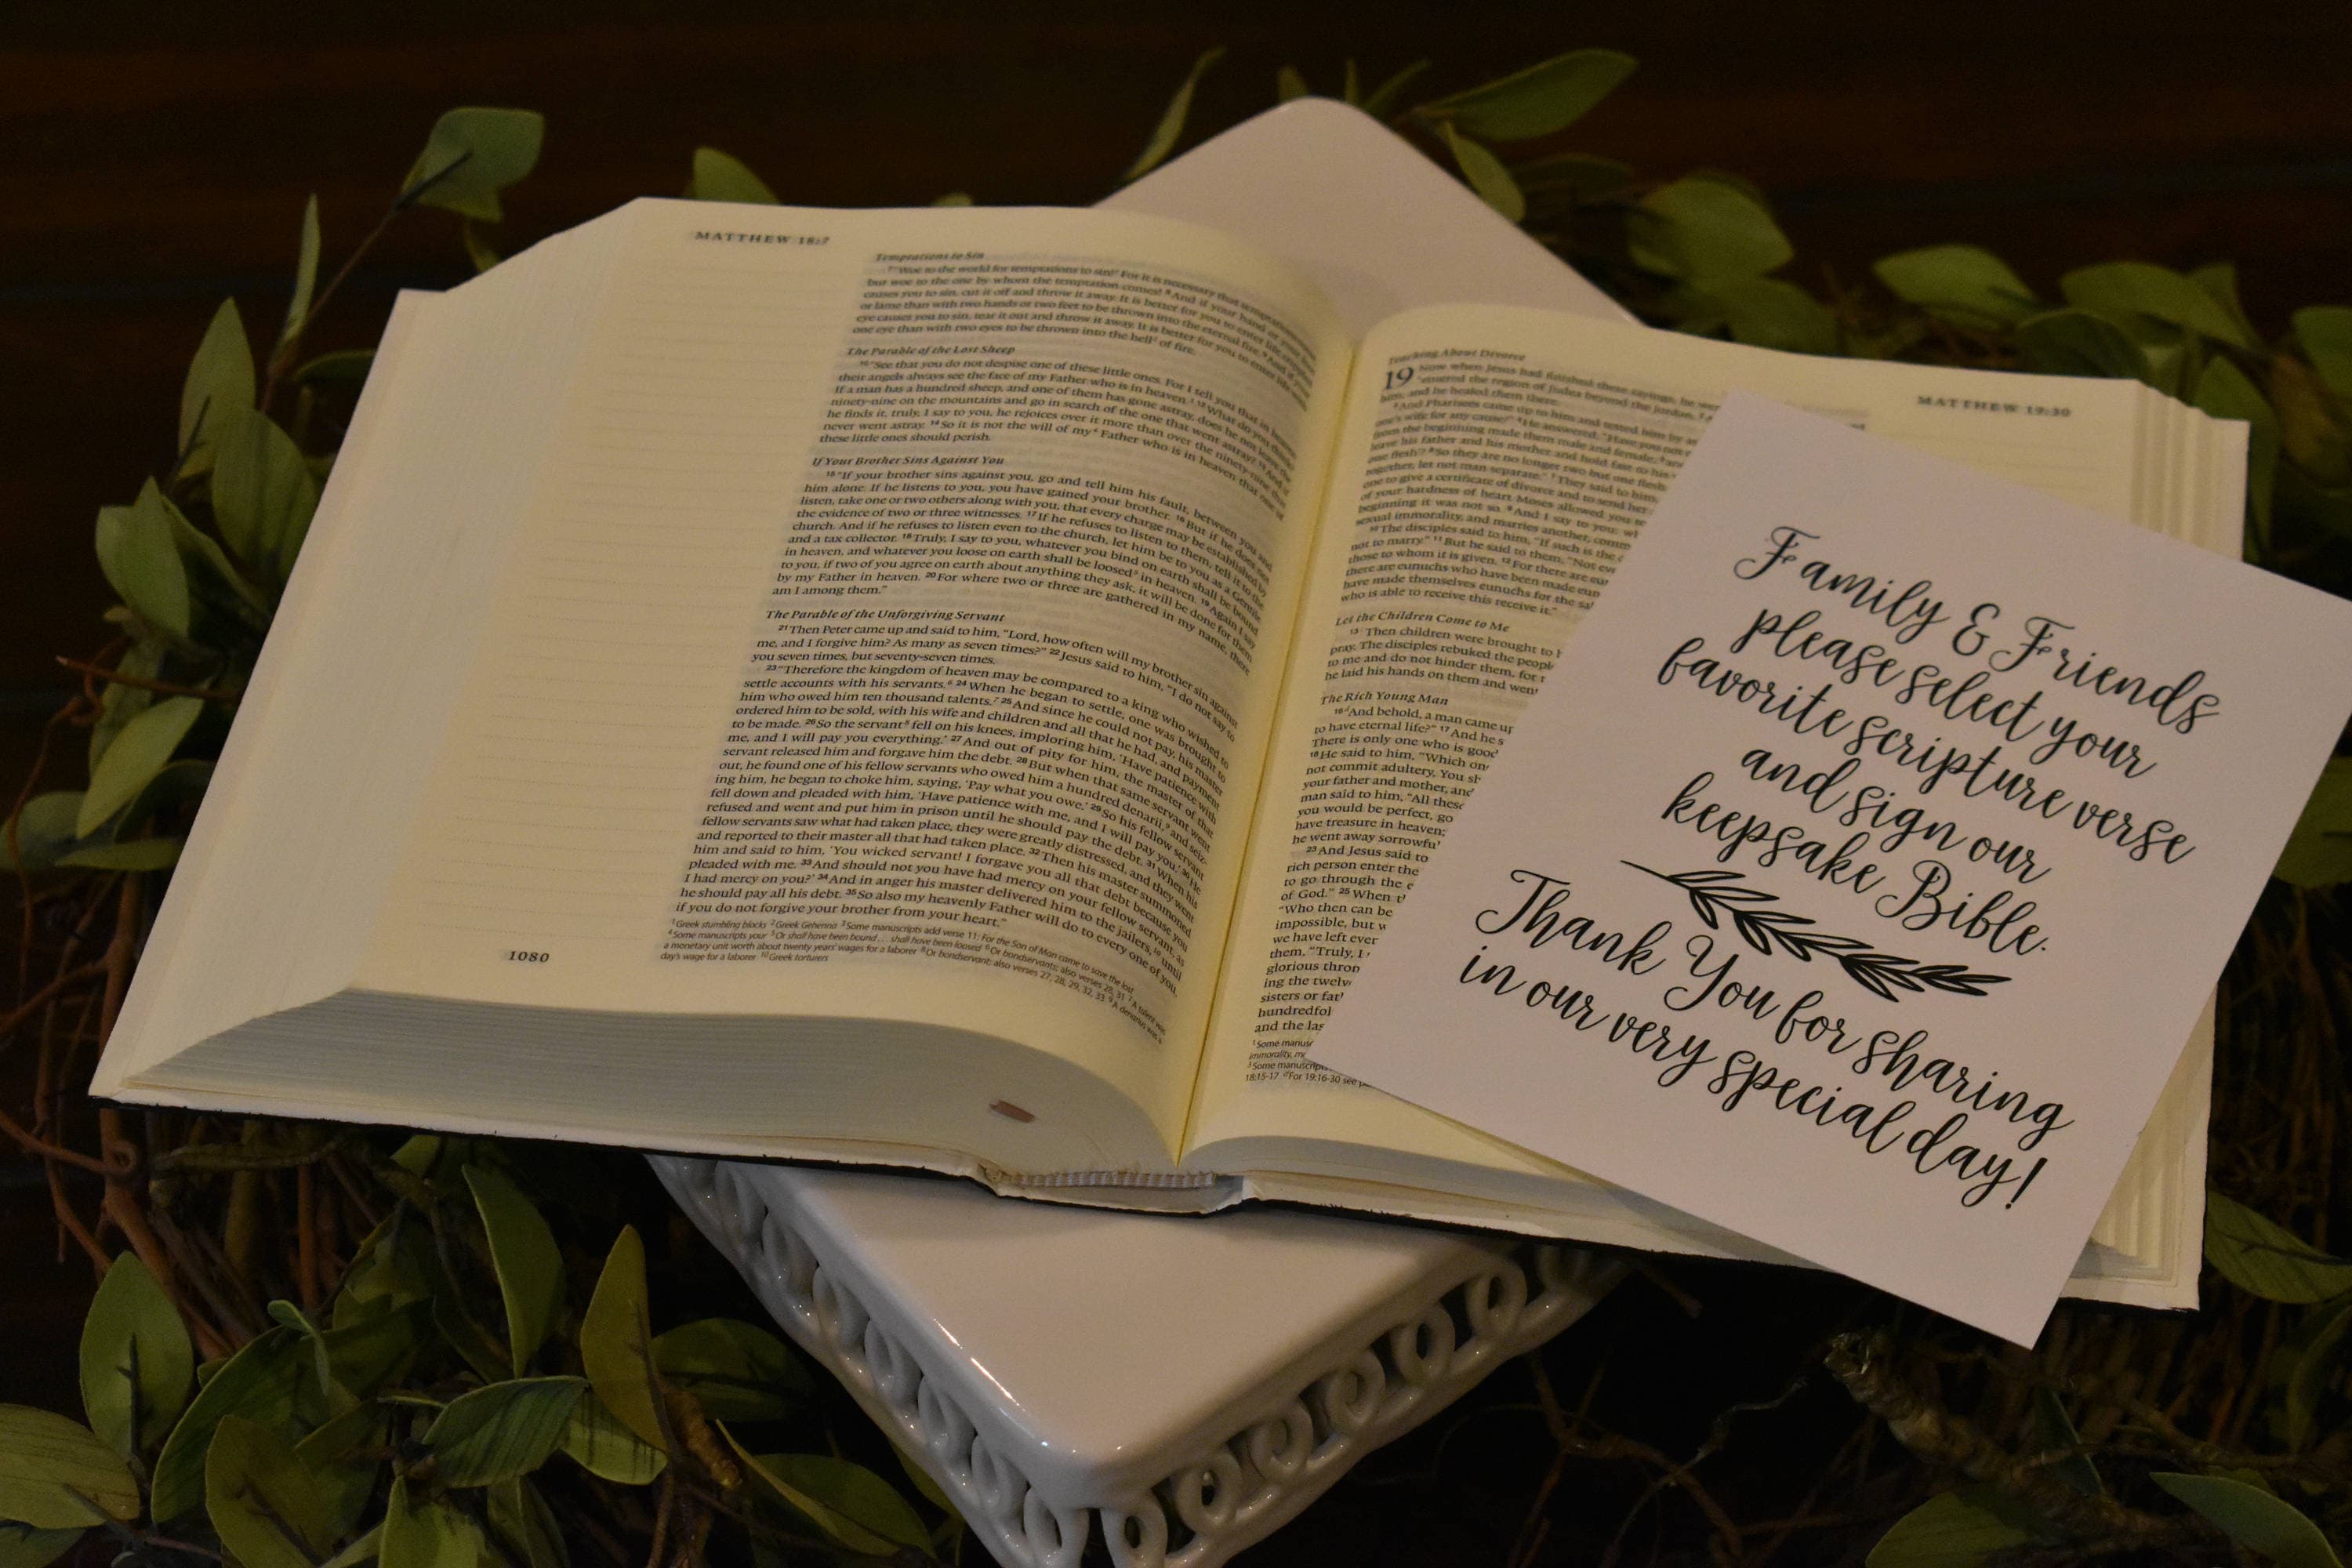 MATTHEW 18:7
Temptations to Sin
7 "Woe to the world for temptations to sin! For it is necessary that temptations
but woe to the one by whom the temptation comes! 8 And if your hand or your
causes you to sin, cut it off and throw it away. It is better for you to enter life
or lame than with two hands or two feet to be thrown into the eternal fire. 9 And if your
eye causes you to sin, tear it out and throw it away. It is better for you to enter life
one eye than with two eyes to be thrown into the hell2 of fire.
The Parable of the Lost Sheep
10 "See that you do not despise one of these little ones. For I tell you that in
their angels always see the face of my Father who is in heaven.3 12 What do you think?
If a man has a hundred sheep, and one of them has gone astray, does he not leave the
ninety-nine on the mountains and go in search of the one that went astray? 13 And if
he finds it, truly, I say to you, he rejoices over it more than over the ninety-nine that
never went astray. 14 So it is not the will of my4 Father who is in heaven that one of
these little ones should perish.
If Your Brother Sins Against You
15 "If your brother sins against you, go and tell him his fault, between you and
him alone. If he listens to you, you have gained your brother. 16 But if he does not
listen, take one or two others along with you, that every charge may be established by
the evidence of two or three witnesses. 17 If he refuses to listen to them, tell it to the
church. And if he refuses to listen even to the church, let him be to you as a Gentile
and a tax collector. 18 Truly, I say to you, whatever you bind on earth shall be bound
in heaven, and whatever you loose on earth shall be loosed5 in heaven. 19 Again I say
to you, if two of you agree on earth about anything they ask, it will be done for them
by my Father in heaven. 20 For where two or three are gathered in my name, there
am I among them."
The Parable of the Unforgiving Servant
21 Then Peter came up and said to him, "Lord, how often will my brother sin against
me, and I forgive him? As many as seven times?" 22 Jesus said to him, "I do not say to
you seven times, but seventy-seven times.
23 "Therefore the kingdom of heaven may be compared to a king who wished to
settle accounts with his servants.6 24 When he began to settle, one was brought to
him who owed him ten thousand talents.7 25 And since he could not pay, his master
ordered him to be sold, with his wife and children and all that he had, and payment
to be made. 26 So the servant8 fell on his knees, imploring him, 'Have patience with
me, and I will pay you everything.' 27 And out of pity for him, the master of that
servant released him and forgave him the debt. 28 But when that same servant went
out, he found one of his fellow servants who owed him a hundred denarii,9 and seiz-
ing him, he began to choke him, saying, 'Pay what you owe.' 29 So his fellow servant
fell down and pleaded with him, 'Have patience with me, and I will pay you.' 30 He
refused and went and put him in prison until he should pay the debt. 31 When his
fellow servants saw what had taken place, they were greatly distressed, and they went
and reported to their master all that had taken place. 32 Then his master summoned
him and said to him, 'You wicked servant! I forgave you all that debt because you
pleaded with me. 33 And should not you have had mercy on your fellow servant, as
I had mercy on you?' 34 And in anger his master delivered him to the jailers,10 until
he should pay all his debt. 35 So also my heavenly Father will do to every one of you,
if you do not forgive your brother from your heart."
1 Greek stumbling blocks 2 Greek Gehenna 3 Some manuscripts add verse 11: For the Son of Man came to save the lost
4 Some manuscripts your 5 Or shall have been bound . . . shall have been loosed 6 Or bondservants; also verses 28, 31 7 A talent was
a monetary unit worth about twenty years' wages for a laborer 8 Or bondservant; also verses 27, 28, 29, 32, 33 9 A denarius was a
day's wage for a laborer 10 Greek torturers
1080
MATTHEW 19:30
Teaching About Divorce
19 Now when Jesus had finished these sayings, he
entered the region of Judea beyond the Jordan.
him, and he healed them there.
3 And Pharisees came up to him and tested him by
one's wife for any cause?" 4 He answered, "Have you not
from the beginning made them male and female,
leave his father and his mother and hold fast to his
one flesh'? 6 So they are no longer two but one flesh.
together, let not man separate." 7 They said to him,
one to give a certificate of divorce and to send her
of your hardness of heart Moses allowed you
beginning it was not so. 9 And I say to you:
sexual immorality, and marries another,
10 The disciples said to him, "If such is the
not to marry." 11 But he said to them, "Not
those to whom it is given. 12 For there are
there are eunuchs who have been made
have made themselves eunuchs for the
who is able to receive this receive it."
Let the Children Come to Me
13 Then children were brought to
pray. The disciples rebuked the
to me and do not hinder them, for
he laid his hands on them and
The Rich Young Man
16 And behold, a man came
to have eternal life?" 17 And he
There is only one who is good
18 He said to him, "Which
not commit adultery, You
your father and mother, and
man said to him, "All these
you would be perfect, go
have treasure in heaven;
he went away
23 And Jesus said to
rich person enter the
to go through the
of God." 25 When
"Who then can be
impossible, but
we have left
them, "Truly, I
glorious
ing the
sisters or
and the
1 Some
immorality,
3 Some
18:15-17 For 19:16-30 see
Family & Friends
please select your
favorite scripture verse
and sign our
keepsake Bible.
Thank You for sharing
in our very special day!